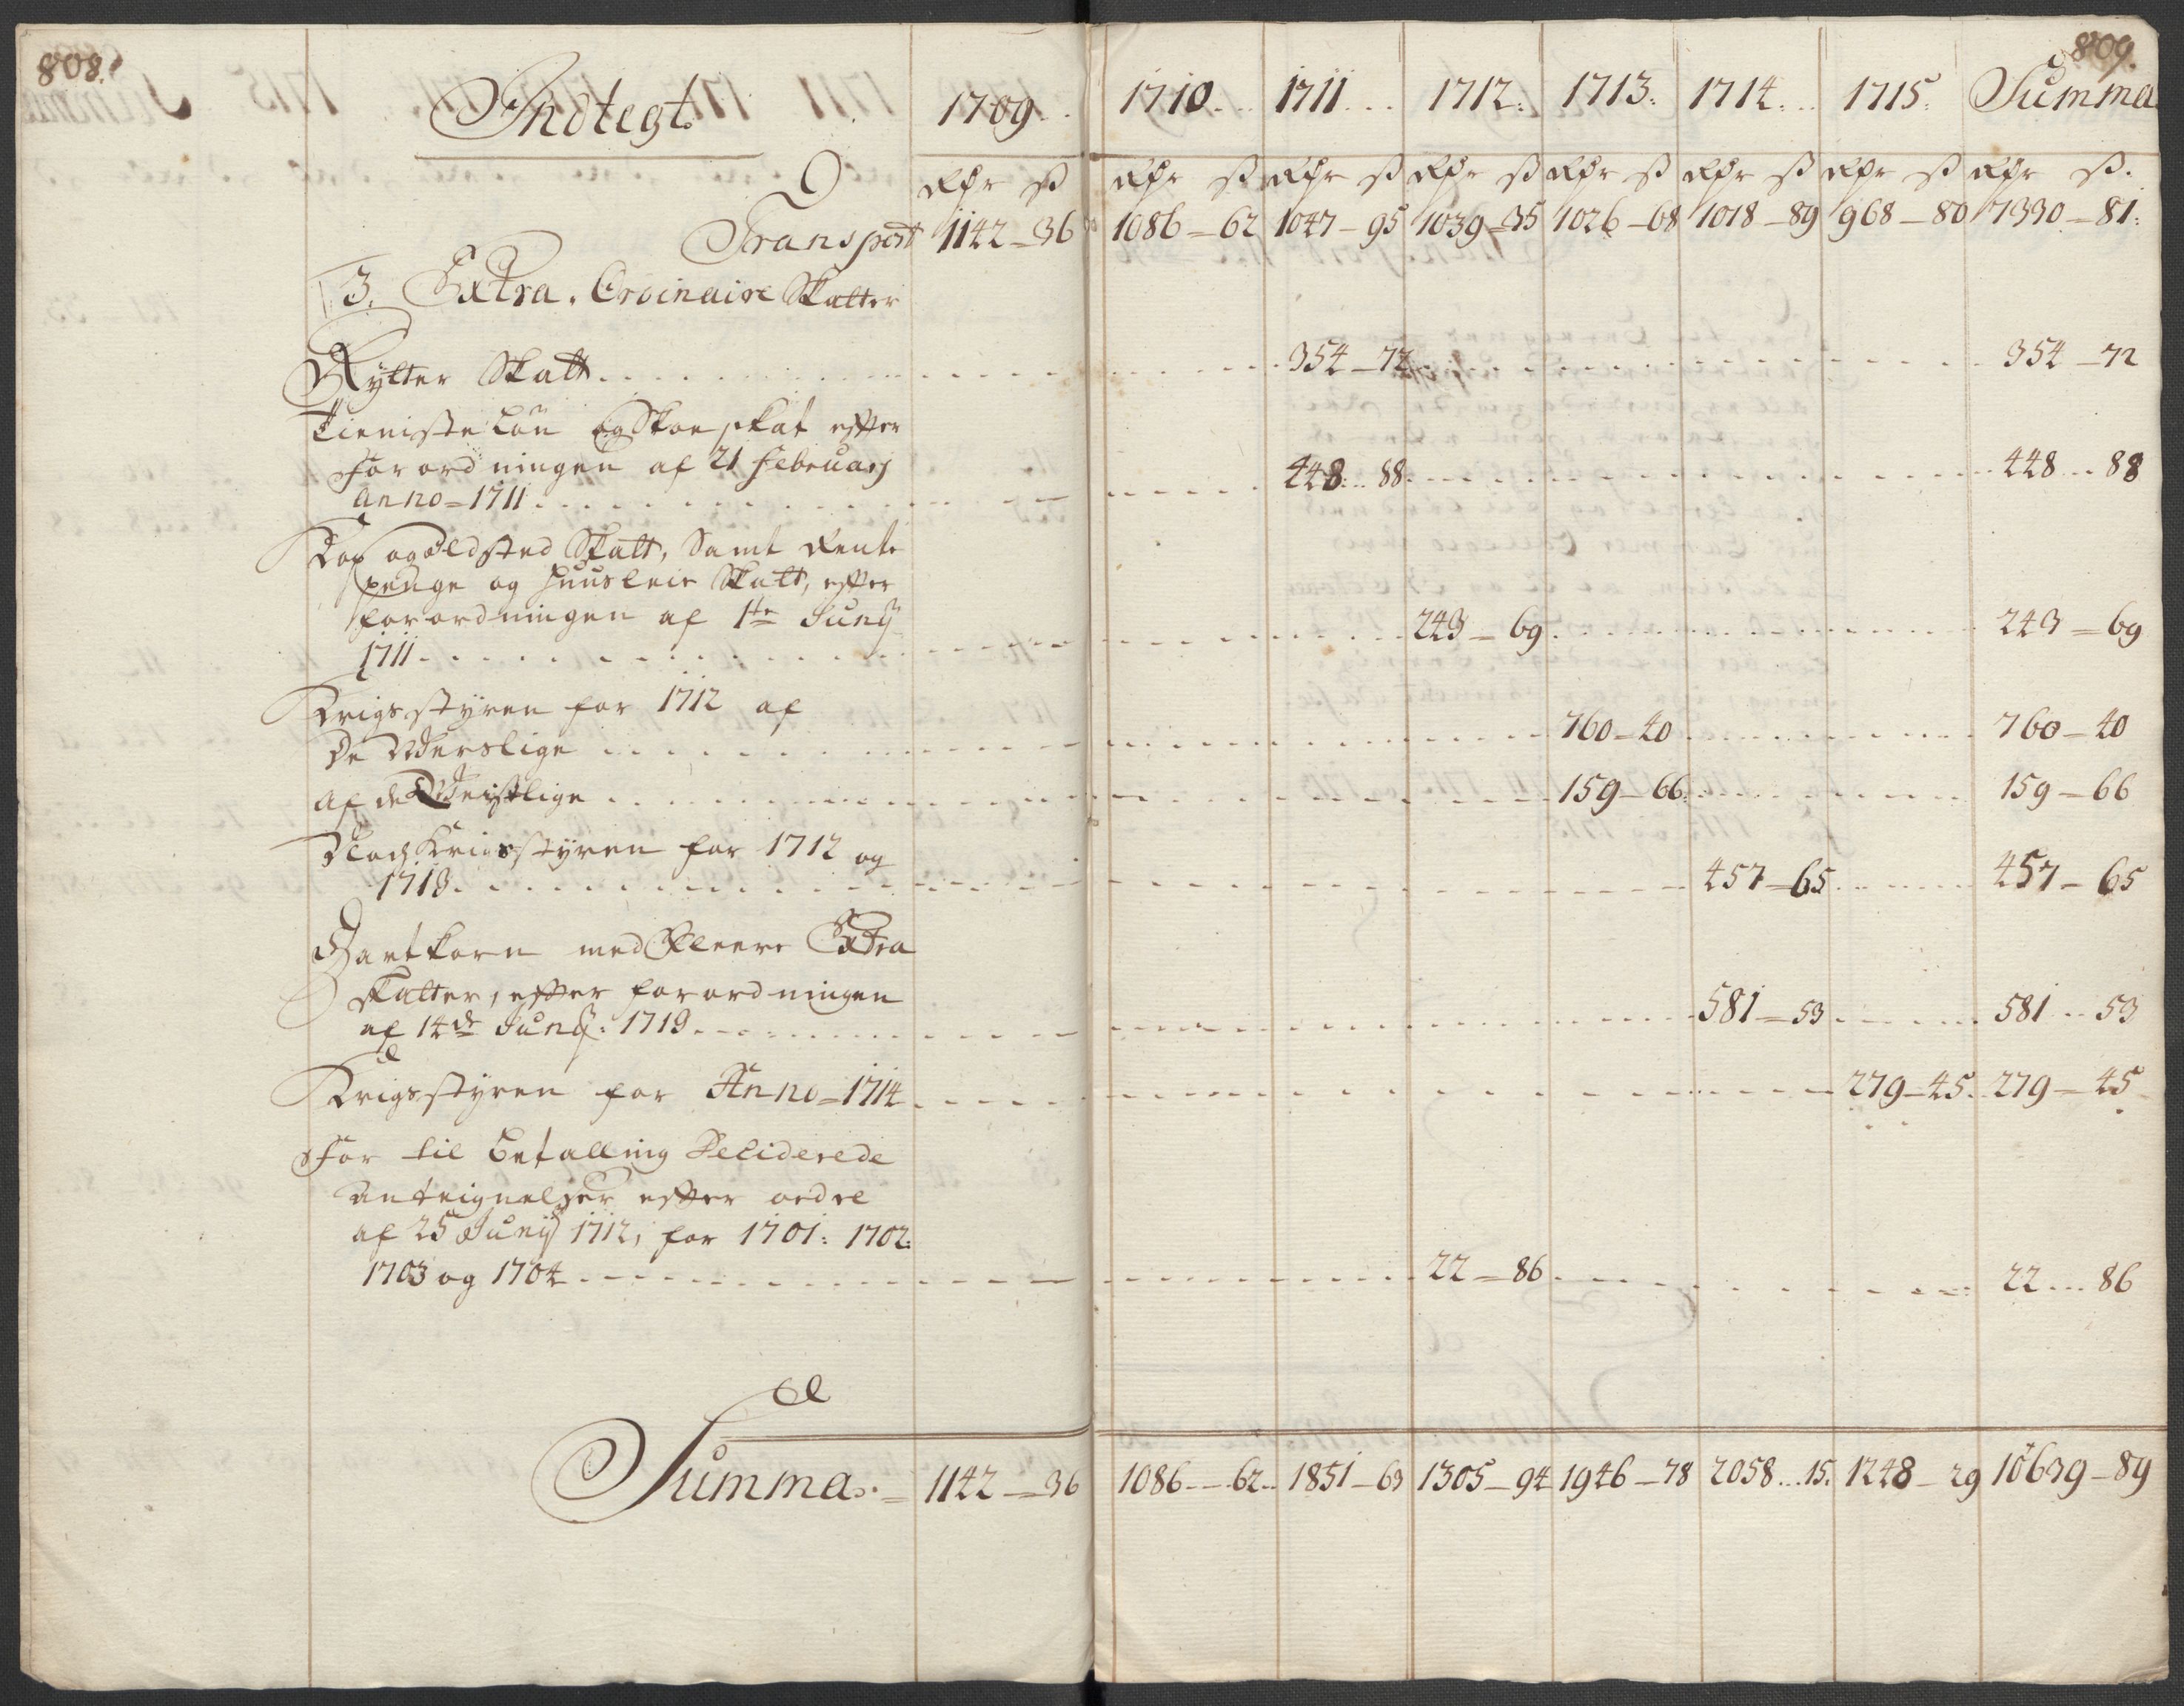 808.
809.
Indtegt. 1709. 1710. 1711. 1712. 1713. 1714. 1715. Summa
Rdr ß Rdr ß Rdr ß Rdr ß Rdr ß Rdr ß Rdr ß Rdr ß.
Transport 1142-36 1086-62 1047-95 1039-35 1026-68 1018-89 968-80 7330-81.
3. Extra. Ordinaire Skatter
Rytter Skatt 354-72 354-72
Tieniste Løn og Skoe skat efter
Forordningen af 21 Februarj
Anno=1711 448-88 448-88
Kop og Ildsted Skatt, Samt Rente
penge og Huusleie Skatt, efter
forordningen af 1te Junij
1711 243-69 243-69
Krigsstyren for 1712 af
De Verslige 760-40 760-40
af de Geistlige 159-66 159-66
Krigsstyren for 1712 og
1713 457-65 457-65
Hartkorn med fleere Extra
Skatter, efter forordningen
af 14de Junij: 1713 581-53 581-53
Krigsstyren for Anno=1714 279-45 279-45
For til betalling Deciderede
Anteignelser efter ordre
af 25 Junij 1712, for 1701: 1702:
1703 og 1704 22-86 22-86
Summa. 1142-36 1086-62 1851-63 1305-94 1946-78 2058-15. 1248-29 10639-89